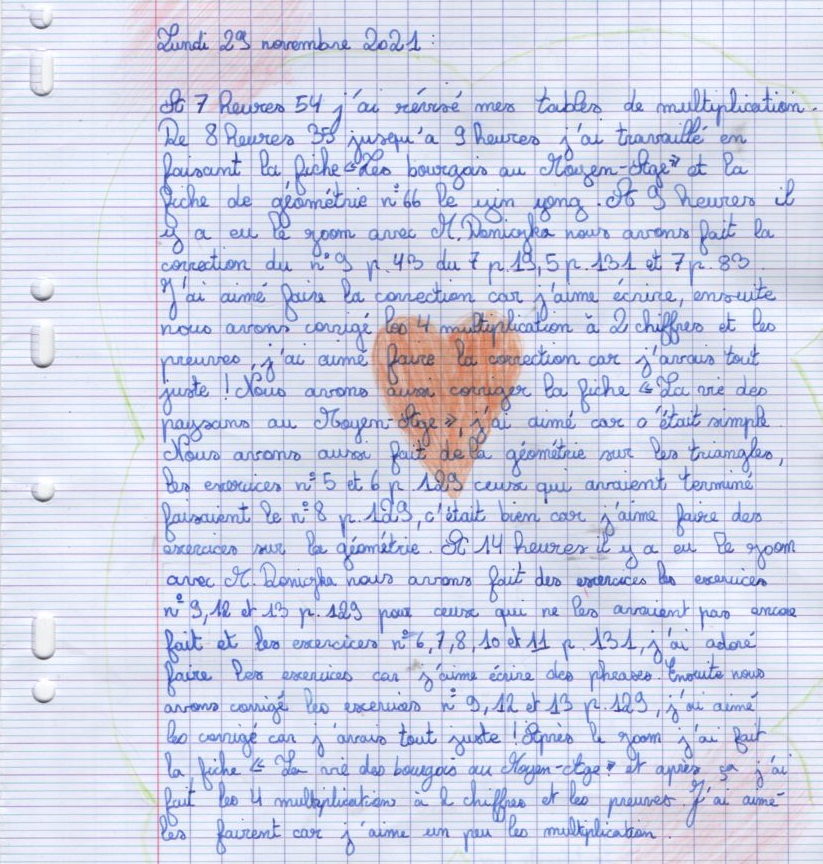 Lundi 29 novembre 2021 :
At 7 heures 54 j'ai révisé mes tables de multiplication.
De 8 heures 35 jusqu'a 9 heures j'ai travaillé en
faisant la fiche « Les bourgois au Moyen-Age » et la
fiche de géométrie n°66 le yin yong. A 9 heures il
y a eu le zoom avec M. Doniczka nous avons fait la
correction du n°9 p.43 du 7 p.19, 5 p.131 et 7 p.83
J'ai aimé faire la correction car j'aime écrire, ensuite
nous avons corrigé les 4 multiplication à 2 chiffres et les
preuves, j'ai aimé faire la correction car j'avais tout
juste ! Nous avons aussi corriger la fiche « La vie des
paysans au Moyen-Age », j'ai aimé car c'était simple.
Nous avons aussi fait de la géométrie sur les triangles,
les exercices n°5 et 6 p.129 ceux qui avaient terminé
faisaient le n°8 p.129, c'était bien car j'aime faire des
exercices sur la géométrie. A 14 heures il y a eu le zoom
avec M. Doniczka nous avons fait des exercices les exercices
n°9, 12 et 13 p.129 pour ceux qui ne les avaient pas encore
fait et les exercices n°6, 7, 8, 10 et 11 p.131, j'ai adoré
faire les exercices car j'aime écrire des phrases. Ensuite nous
avons corrigé les exercices n°9, 12 et 13 p.129, j'ai aimé
les corrigé car j'avais tout juste ! Après le zoom j'ai fait
la fiche « La vie des bourgois au Moyen-Age » et après ça j'ai
fait les 4 multiplications à 2 chiffres et les preuves. J'ai aimé
les fairent car j'aime un peu les multiplication.